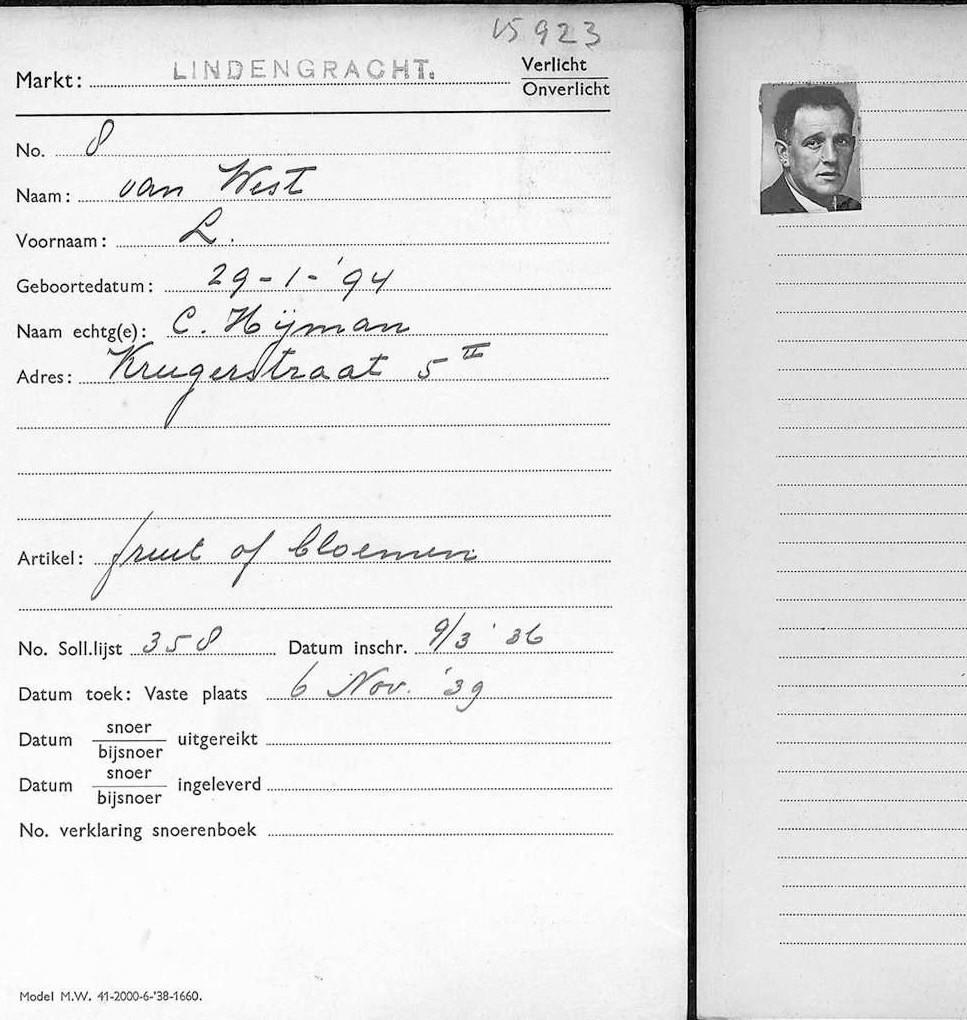 15923
Markt: LINDENGRACHT.
Verlicht
Onverlicht
No. 8
Naam: van West
Voornaam: L.
Geboortedatum: 29-1-'94
Naam echtg(e): C. Hijman
Adres: Krugerstraat 5 II
Artikel: fruit of bloemen
No. Soll.lijst 358 Datum inschr. 9/3 '36
Datum toek: Vaste plaats 6 Nov. '39
Datum snoer/bijsnoer uitgereikt
Datum snoer/bijsnoer ingeleverd
No. verklaring snoerenboek
Model M.W. 41-2000-6-'38-1660.